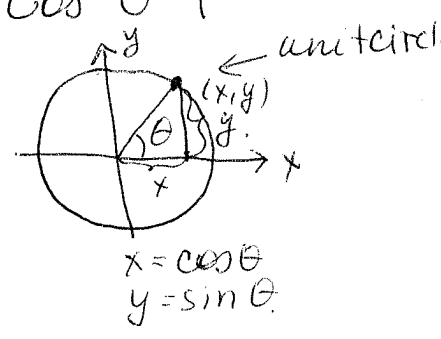 cos θ
y
unitcircl
(x,y)
θ
y.
x
x
x = cosθ
y = sin θ.